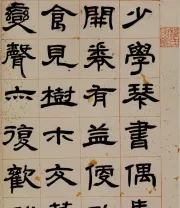 少學琴書偶
開卷有益便
食見樹木交
變聲亦復歡